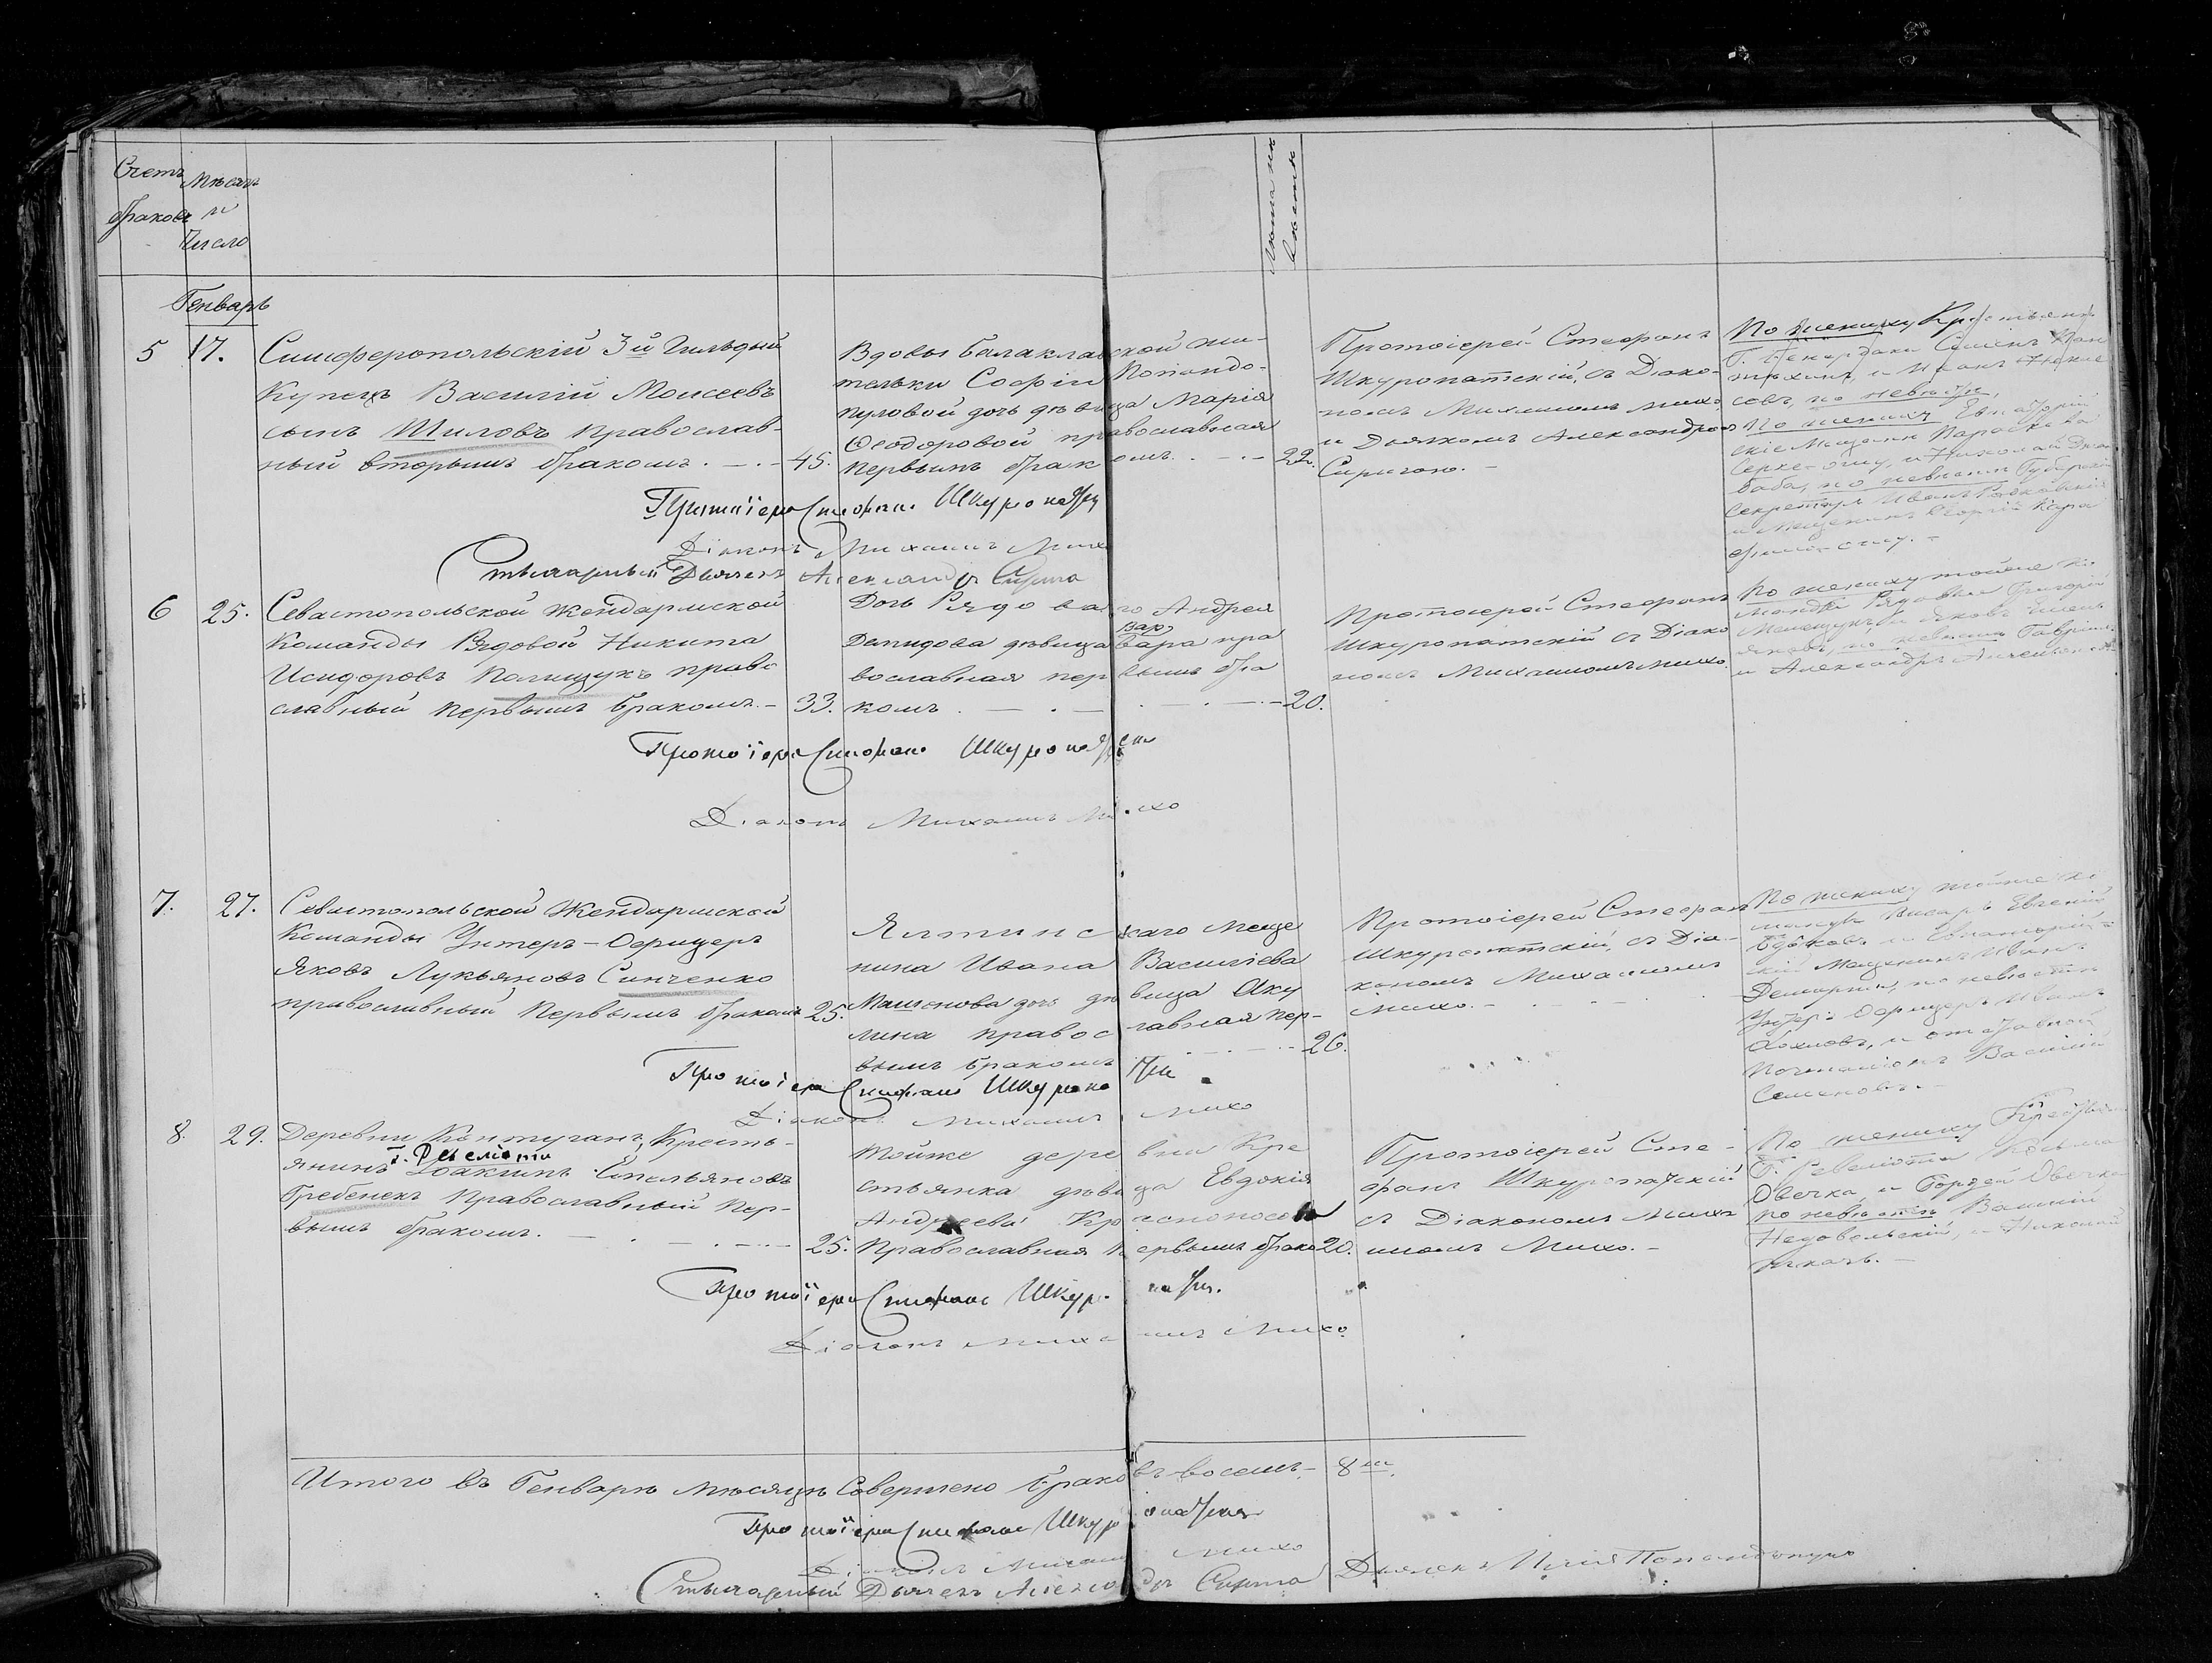 Счетъ браковъ
Мѣсяцъ и Число
Лѣта не вѣстѣ
Генварь
5 17. Симферопольскій 3й Гильдыи
Купецъ Василій Моисеевъ
сынъ Шиловъ православ-
ный вторымъ бракомъ. 45.
Вдовы балаклавской жи-
тельки Софіи Попандо-
пуловой дочь дѣвица Марія
Ѳеодоровой православная
первымъ бракомъ. 22.
Протоіерей Стефанъ
Шкуропатскій, съ Діако-
номъ Михаиломъ Михо,
и Дьячкомъ Александромъ
По жениху Крестьяне
Семенъ
и Иванъ
по невѣстѣ
Секретарь Иванъ
и Мещанинъ Георгій Кара
Протоіерей Стефанъ Шкуропатскій
Діаконъ Михаилъ Михо
Дьячекъ Александръ
6 25. Севастопольской Жендармской
Команды Рядовой Никита
Исидоровъ Полищукъ право
славный первымъ бракомъ. 33.
Дочь Рядоваго Андрея
Демидова дѣвица Варвара пра
вославная первымъ бра
комъ. 20.
Протоіерей Стефанъ
Шкуропатскій съ Діако
номъ Михаиломъ Михо.
По жениху тойже ко
манды Рядовые Григорій
и Яковъ
по невѣстѣ Гавріилъ
и Александръ
Протоіерей Стефанъ Шкуропатскій
Діаконъ Михаилъ Михо
7. 27. Севастопольской Жендармской
Команды Унтеръ-Офицеръ
Яковъ Лукьяновъ Синченко
православный Первымъ бракомъ 25.
Ялтинскаго Меща
нина Ивана Васильева
дочь дѣвица Аку
лина православная пер-
вымъ бракомъ 26.
Протоіерей Стефанъ
Шкуропатскій, съ Діа-
кономъ Михаиломъ
Михо.
По жениху тойже ко
манды Писарь Евгеній
и Евпаторій-
скій Мещанинъ Иванъ
по невѣстѣ
Унтеръ Офицеръ Иванъ
и отставной
Почталіонъ Василій
Семеновъ.
Протоіерей Стефанъ Шкуропатскій
Діаконъ Михаилъ Михо
8. 29. Деревни Контуганъ, Кресть-
янинъ Г. Ревеліоти Іоакимъ Емельяновъ
Гребенекъ Православный Пер-
вымъ бракомъ. 25.
Тойже деревни Кре
стьянка дѣвица Евдокія
Андреева Красноносова
Православная Первымъ брако 20.
Протоіерей Сте-
фанъ Шкуропатскій
съ Діакономъ Миха
иломъ Михо.
По жениху Крестьяне
Г. Ревеліоти Козьма
Овечка, и Гордей Овечка
по невѣстѣ Василій
Недовольскій, и Николай
Протоіерей Стефанъ Шкуропатскій
Діаконъ Михаилъ Михо.
Итого въ Генварѣ мѣсяцѣ Совершено браковъ восемь, 8мь.
Протоіерей Стефанъ Шкуропатскій
Діаконъ Михаилъ Михо
Дьячекъ Александръ
Дьячекъ Попандопуло